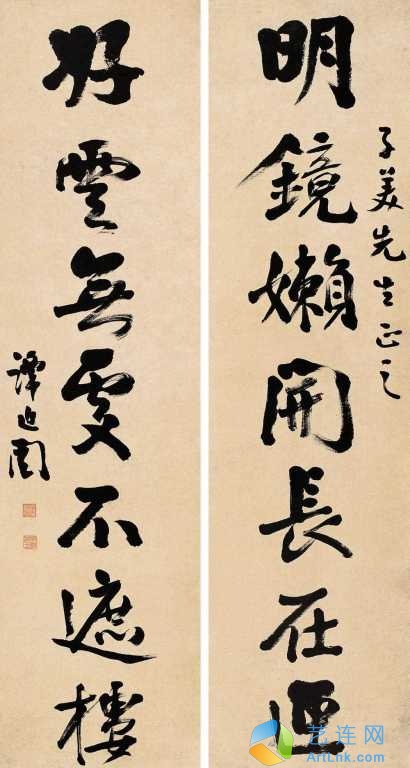 子美先生正之
明鏡嬾開長在匣
好雲無處不遮樓
譚延闓
艺连网
ArtLnk.com